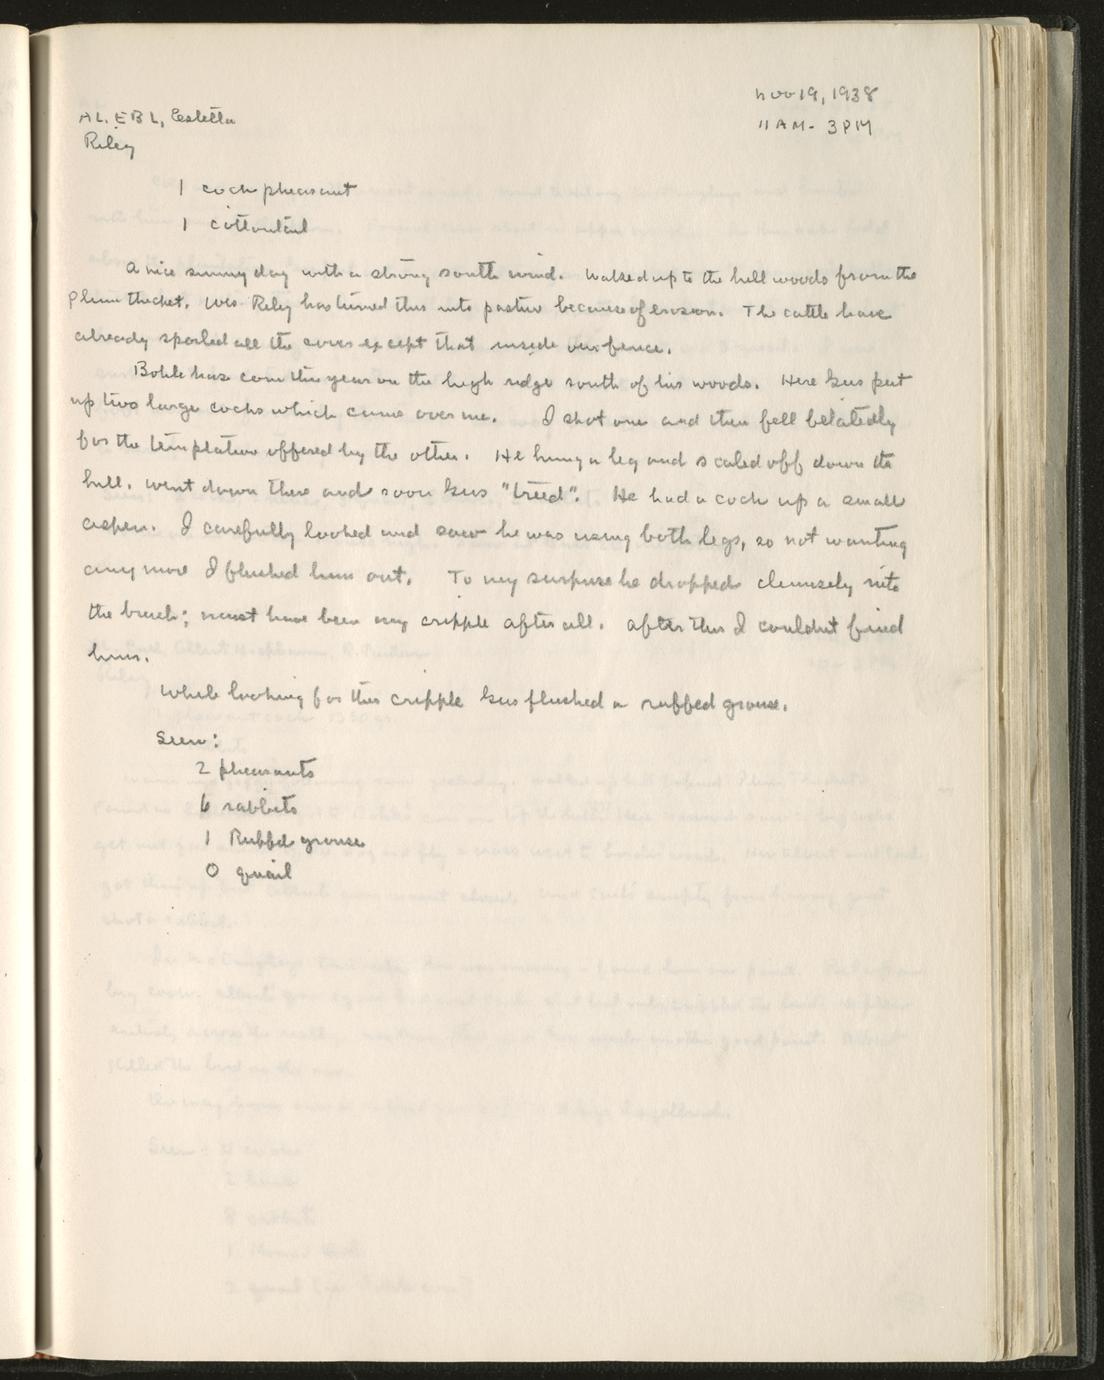 AL, EBL, Estella
Riley
Nov 19, 1938
11 AM - 3 PM
1 cock pheasant
1 cottontail
A nice sunny day with a strong south wind. Walked up to the hill woods from the
plum thicket. Wes Riley has turned this into pasture because of erosion. The cattle have
already spoiled all the cover except that inside our fence.
Bohle has corn this year on the high ridge south of his woods. Here Gus put
up two large cocks which came over me. I shot one and then fell belatedly
for the temptation offered by the other. He hung a leg and scaled off down the
hill. Went down there and soon Gus "treed". He had a cock up a small
aspen. I carefully looked and saw he was using both legs, so not wanting
any more I flushed him out. To my surprise he dropped clumsily into
the brush; must have been my cripple after all. After this I couldn't find
him.
While looking for this cripple Gus flushed a ruffed grouse.
Seen:
2 pheasants
6 rabbits
1 Ruffed grouse
0 quail